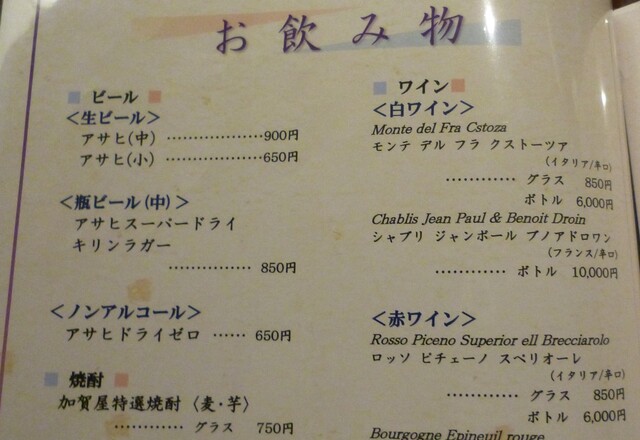 お飲み物
ビール
＜生ビール＞
アサヒ(中) ………………900円
アサヒ(小) ………………650円
＜瓶ビール(中)＞
アサヒスーパードライ
キリンラガー
…………… 850円
＜ノンアルコール＞
アサヒドライゼロ …… 650円
焼酎
加賀屋特選焼酎〈麦・芋〉
………… グラス 750円
ワイン
＜白ワイン＞
Monte del Fra Cstoza
モンテ デル フラ クストーツァ
(イタリア/辛口)
………… グラス 850円
ボトル 6,000円
Chablis Jean Paul & Benoit Droin
シャブリ ジャンポール ブノアドロワン
(フランス/辛口)
………… ボトル 10,000円
＜赤ワイン＞
Rosso Piceno Superior ell Brecciarolo
ロッソ ピチェーノ スペリオーレ
(イタリア/辛口)
………… グラス 850円
ボトル 6,000円
Bourgogne Epineuil rouge